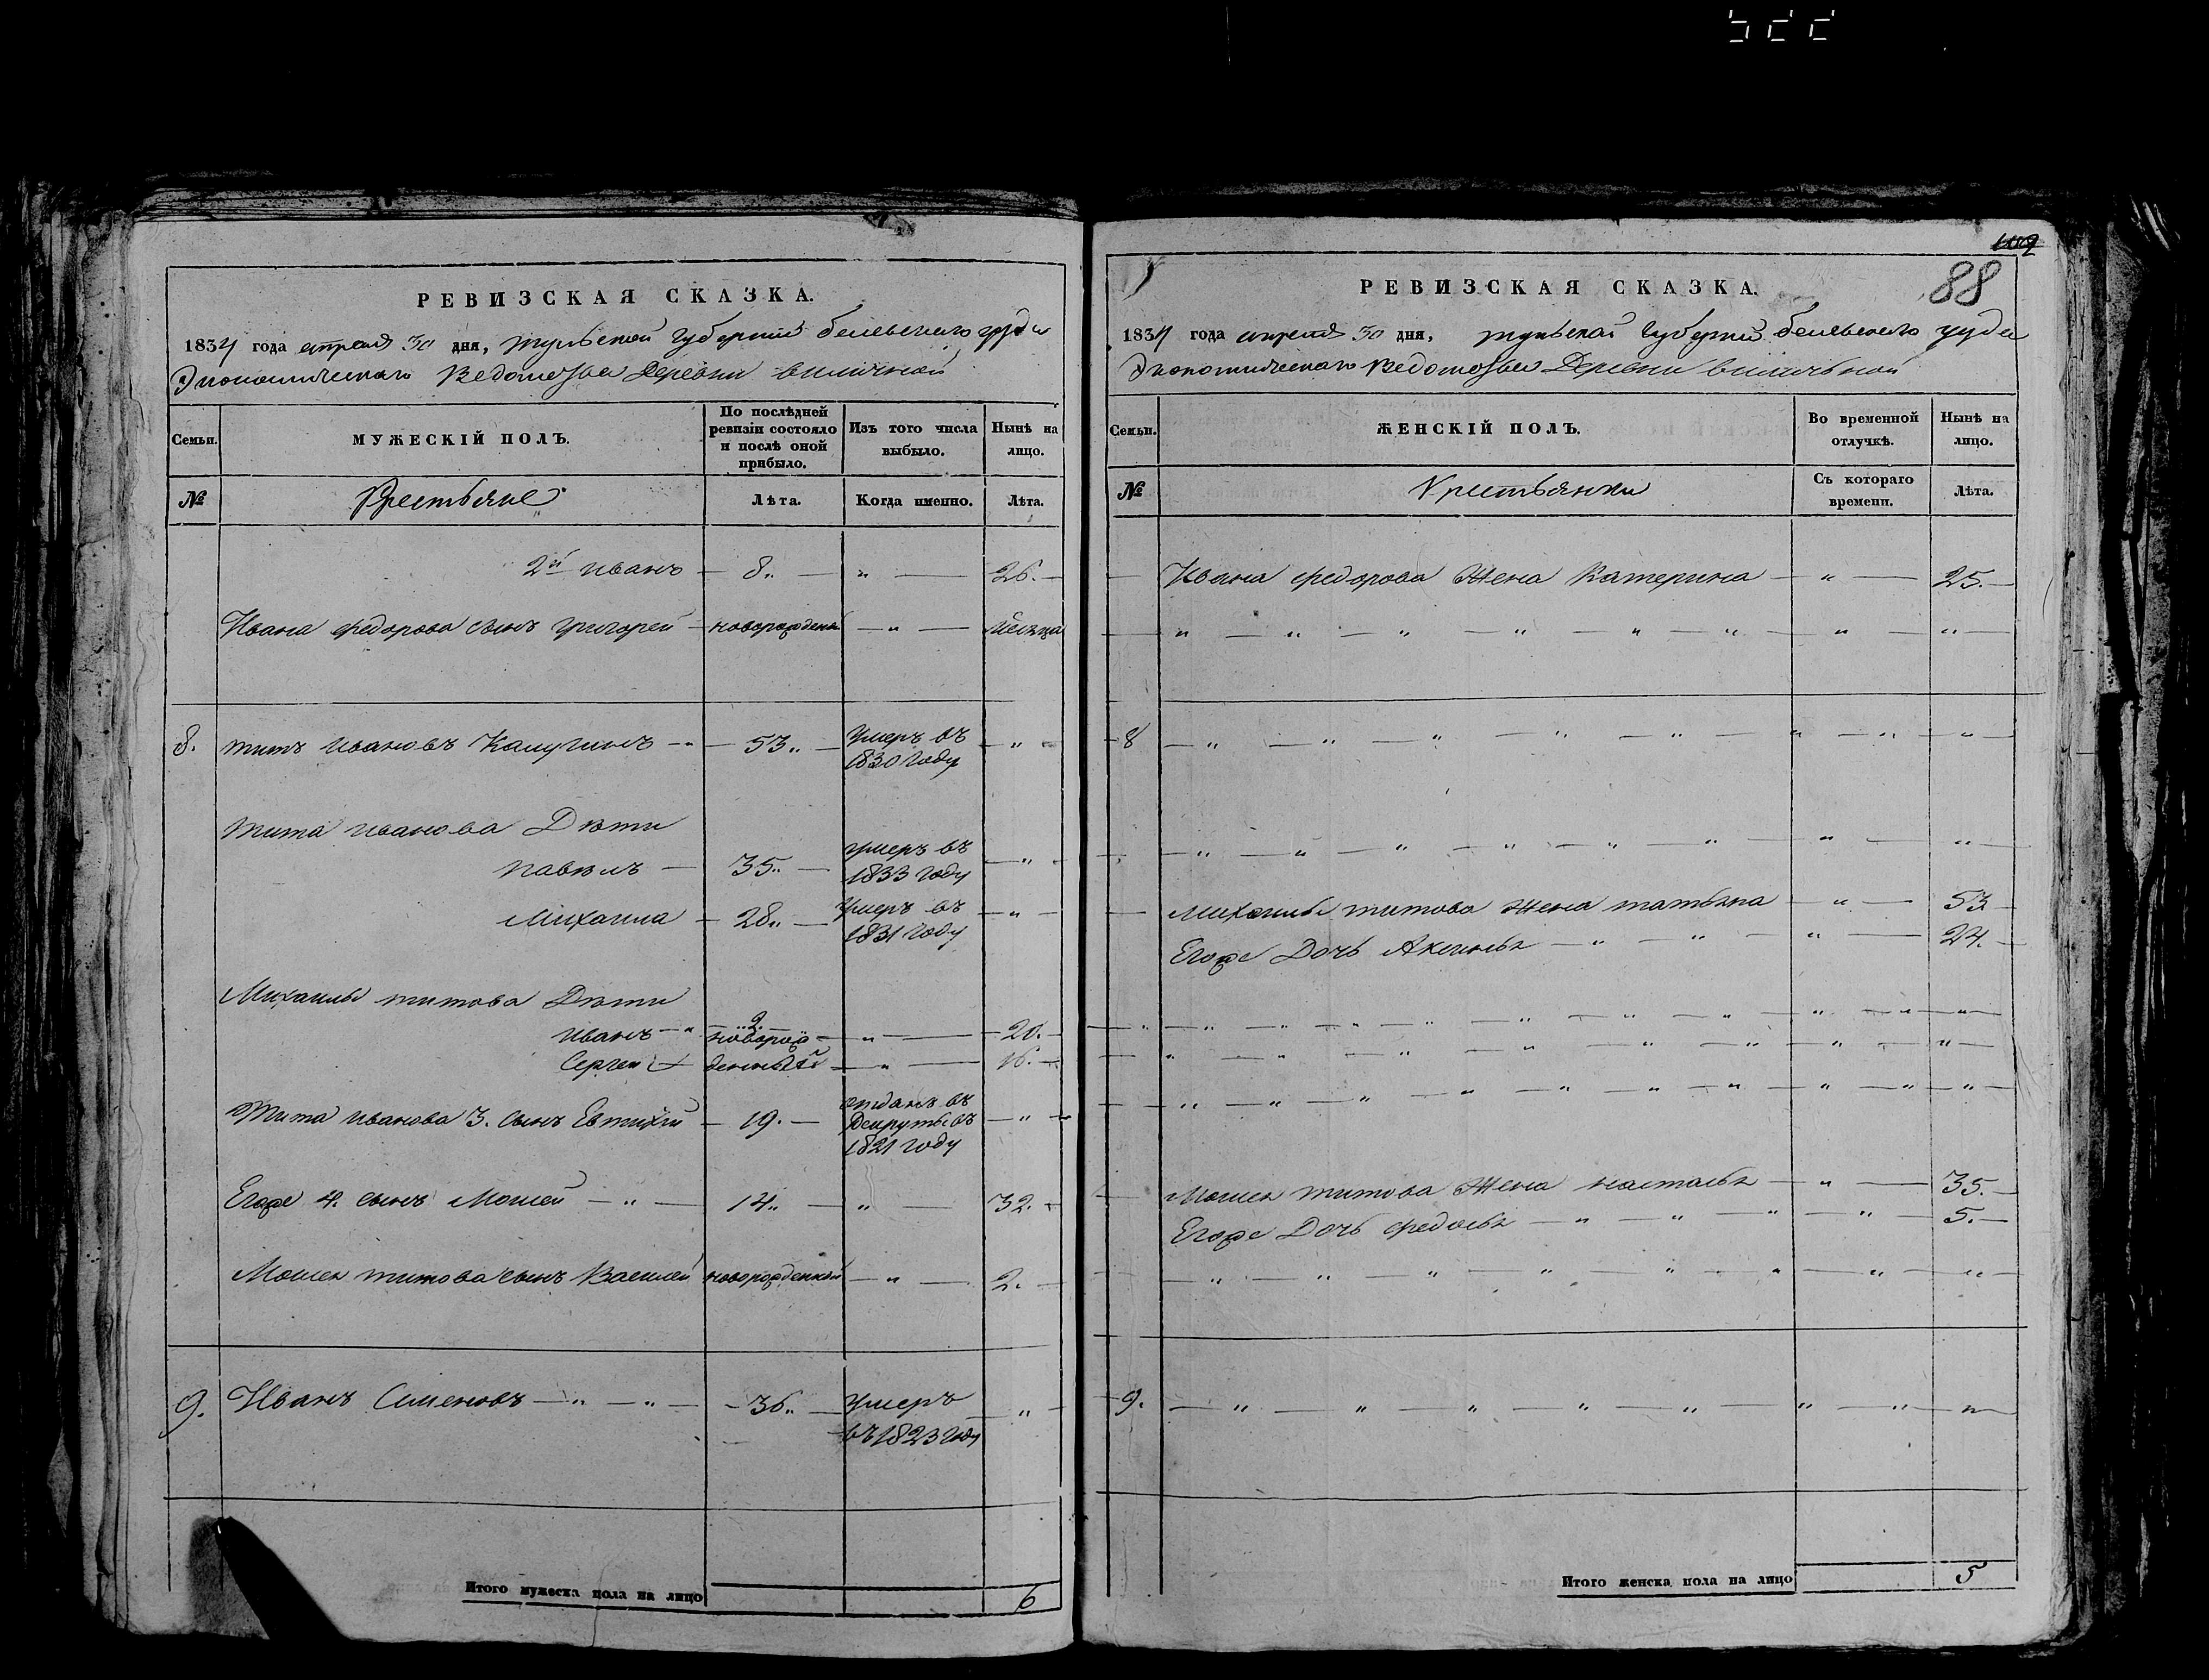 РЕВИЗСКАЯ СКАЗКА.
1834 года апреля 30 дня, тульской губернии белевскаго уезда
Экономическаго Ведомства Деревни
Семьи.
МУЖЕСКІЙ ПОЛЪ.
По послѣдней ревизіи состояло и послѣ оной прибыло.
Изъ того числа выбыло.
Нынѣ на лицо.
№
Крестьяне
Лѣта.
Когда именно.
Лѣта.
2й иванъ — 8 „ — „ — 26. —
Ивана федорова сынъ григорей — новорожденъ — „ — месяца
8. титъ ивановъ Калугинъ — 53 „ — умеръ въ 1830 году — „
тита иванова Дѣти
павелъ — 35 „ — умеръ въ 1833 году — „
Михаила — 28 „ — умеръ въ 1831 году — „
Михайлы титова Дѣти
иванъ — „ — 2. — „ — 20. —
Сергей — новорожденный — „ — 16. —
Тита иванова 3. сынъ Евтихий — 19. — отданъ въ рекруты въ 1821 году — „
Егоже 4. сынъ Мосей — „ — 14 „ — „ — 32. —
Мосея титова сынъ Василей новорожденной — „ — 2. —
9. Иванъ Семеновъ — „ — „ — 36 „ — умеръ въ 1823 году — „
Итого мужеска пола на лицо
6
88
РЕВИЗСКАЯ СКАЗКА.
1834 года апреля 30 дня, тульской губернии белевскаго уезда
Экономическаго Ведомства Деревни
Семьи.
ЖЕНСКІЙ ПОЛЪ.
Во временной отлучкѣ.
Нынѣ на лицо.
№
Крестьянки
Съ котораго времени.
Лѣта.
Ивана федорова Жена Катерина — „ — 25. —
8
Михайлы титова Жена татьяна — „ — 53
Егоже Дочь Аксинья — „ — „ — „ — 24.
Мосея титова Жена настасья — „ — 35. —
Егоже Дочь федосья — „ — „ — „ — „ — 5. —
9.
Итого женска пола на лицо
5